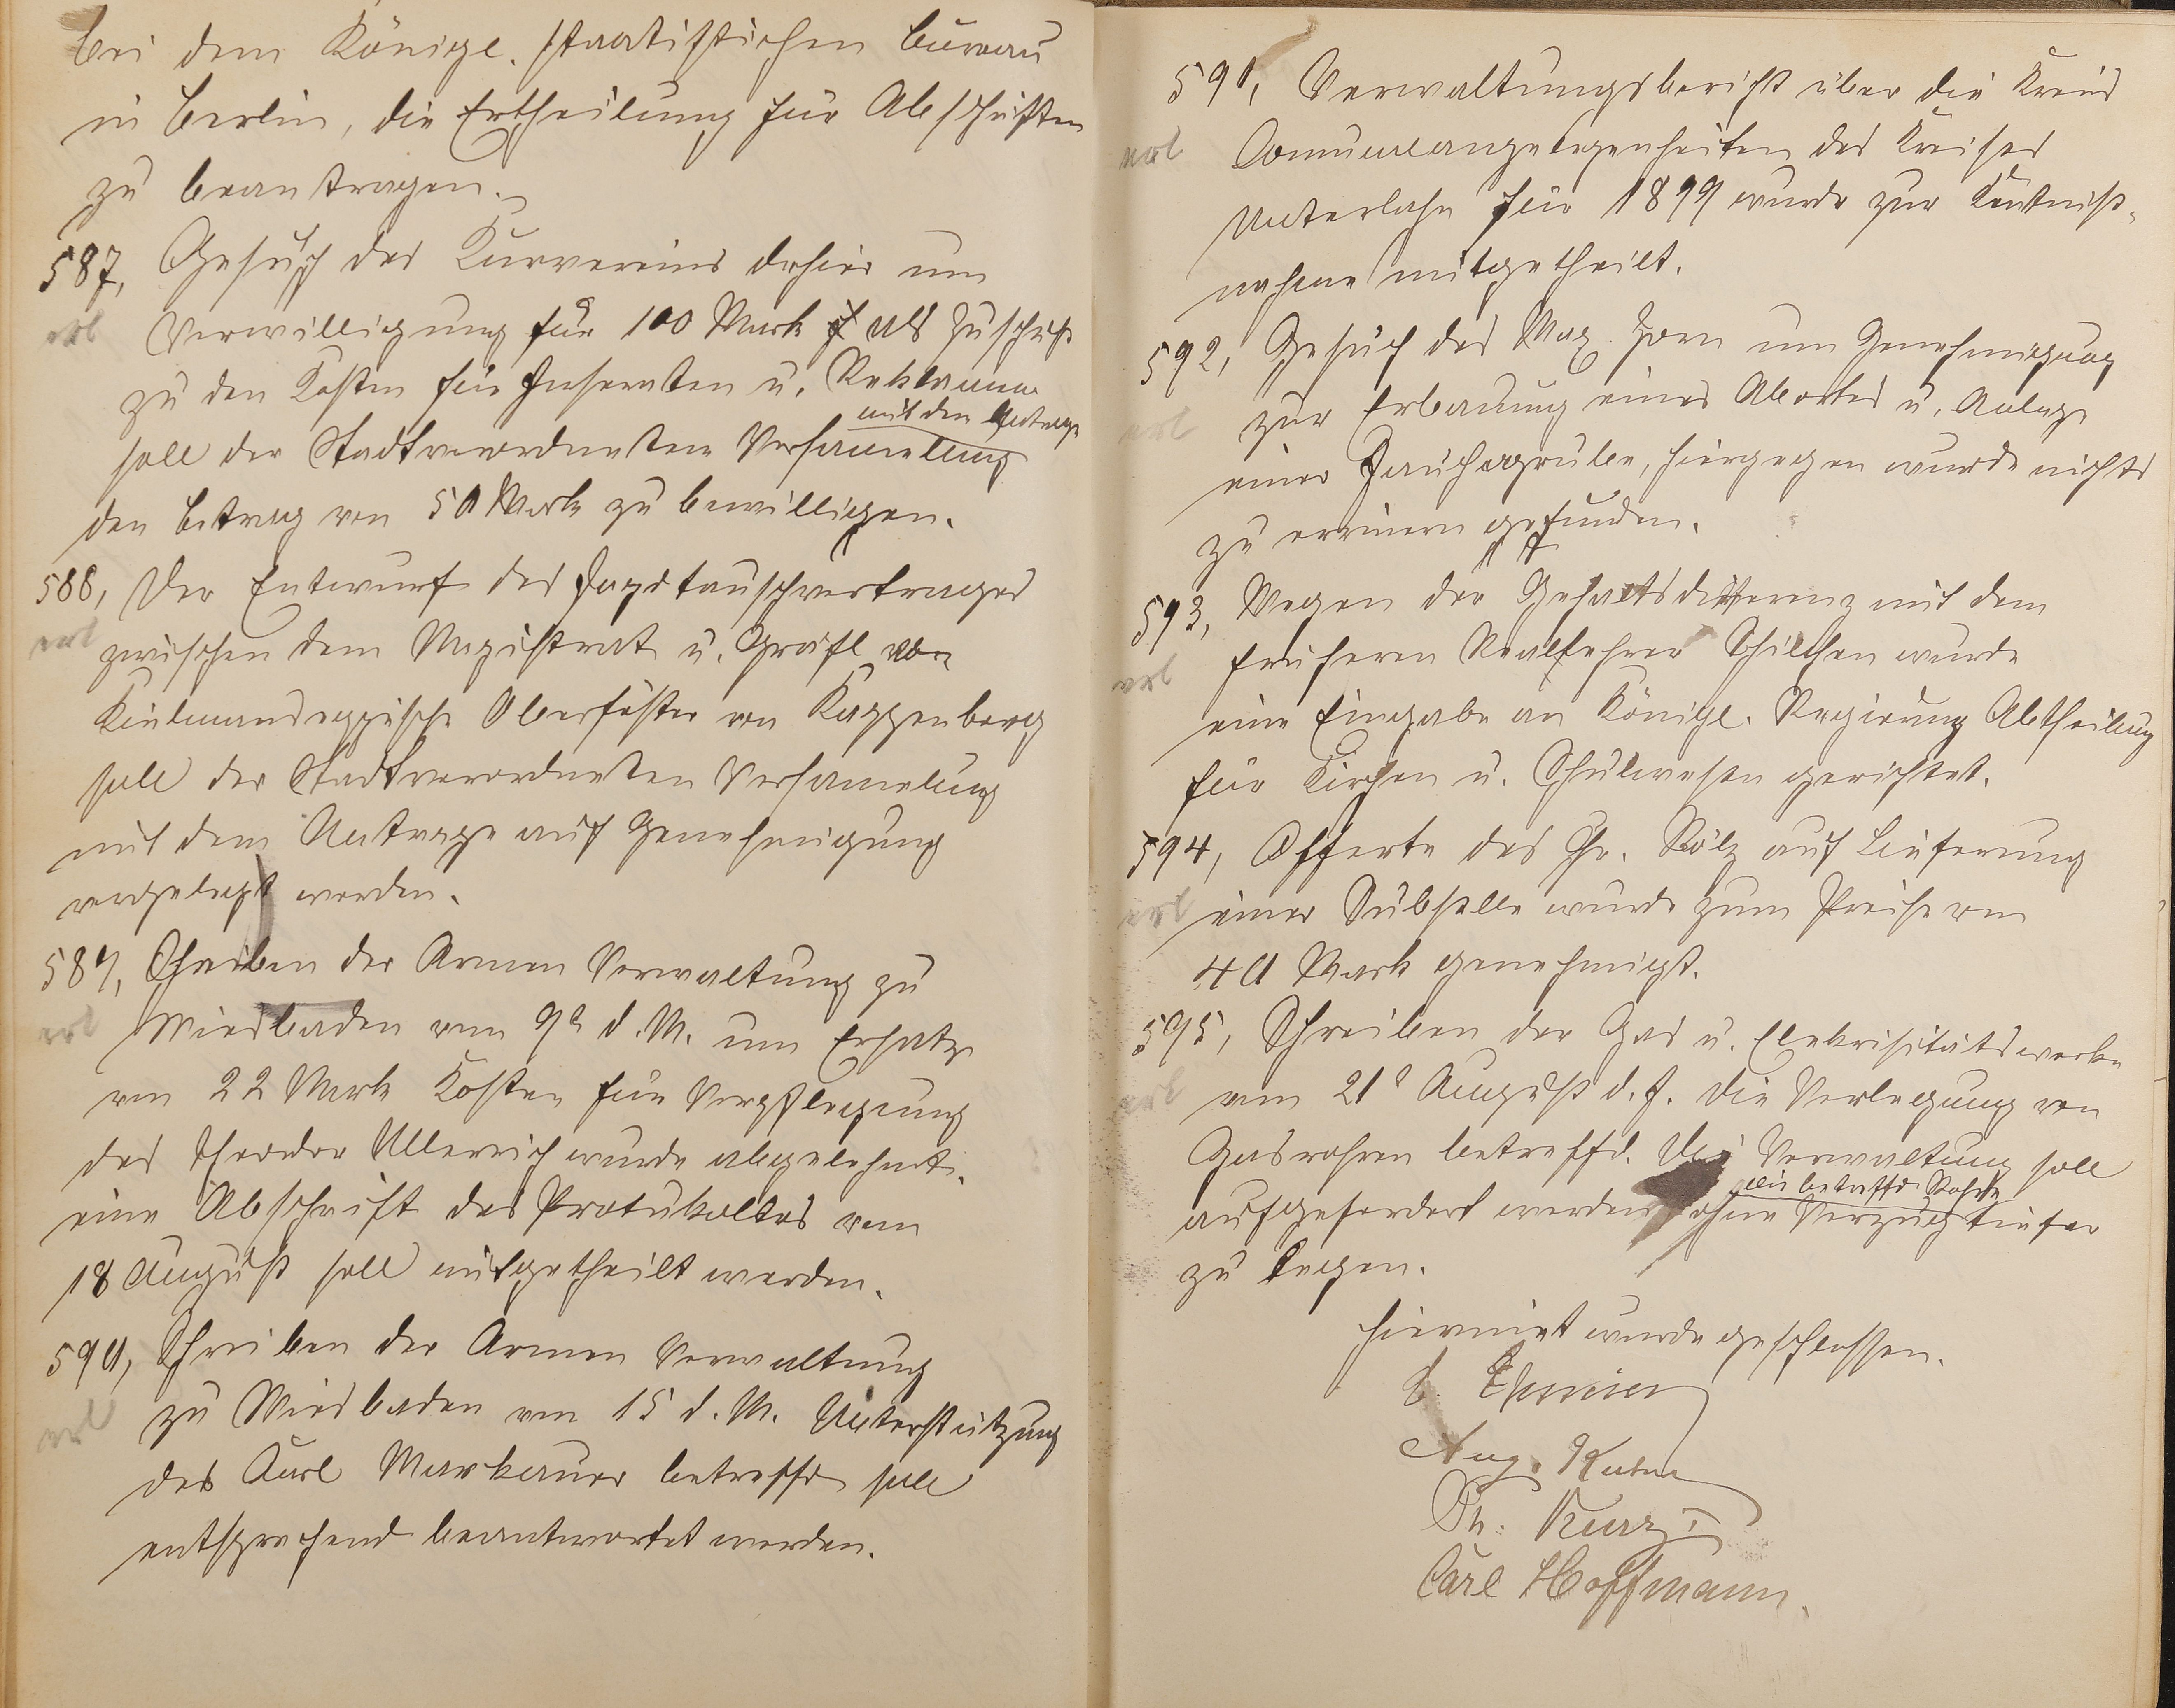 bei dem Königl. staatistischen Bureau
in Berlin, die Ertheilung für Abschriften
zu beantragen.
587, Gesuch des Kurvereins dahier um
erl Verwilligung für 100 Mark als Zuschuß
zu den Kosten für Inseraten u. Reklame
mit dem Antrage
soll der Stadtverordneten Versamelung
den Betrag von 50 Mark zu bewilligen.
588, Der Entwurf des Jagdtauschvertrages
erl zwischen dem Magistrat u. Gräfl von
Kielmanseggische Oberförster von Kappenberg
soll der Stadtverordneten Versamelung
mit dem Antrage auf Genehmigung
vorgelegt werden.
589, Schreiben der Armen Verwaltung zu
erl Wiesbaden vom 9ª d. M. um Ersatz
von 22 Mark Kosten für Verpflegung
des Theodor Ullerich wurde abgelehnt.
eine Abschrift des Protukolles vom
18 August soll mitgetheilt werden.
590, Schreiben der Armen Verwaltung
erl zu Wiesbaden vom 15 d. M. Unterstützung
des Karl Markauer betreffd soll
entsprechend beantwortet werden.
591, Verwaltungsbericht über die Kreis
erl Comunalangelegenheiten des Kreises
Unterlahn für 1899 wurde zur Kentniß-
nahme mitgetheilt.
592, Gesuch des Max Horn um Genehmigung
erl zur Erbauung eines Abortes u. Anlage
einer Jauchegrube, hiergegen wurde nichts
zu erinern gefunden.
593, Wegen der Gehaltsdifferenz mit dem
erl früheren Reallehrer Schilchen wurde
eine Eingabe an Königl. Regierung Abtheilung
für Kirchen u. Schulwesen gerichtet.
594, Offerte des Chr. Bölz auf Lieferung
erl einer Subselle wurde zum Preise von
40 Mark genehmigt.
595, Schreiben der Gas u. Elekrisitätswerke
erl vom 21ª August d. J. die Verlegung von
Gasrohren betreffd. Die Verwaltung soll
die betreffd Rohre
aufgefordert werden ohne Verzug tiefer
zu legen.
Hiermit wurde geschlossen.
Aug. Kuhn
Ph. Kurz
Carl Hoffmann.